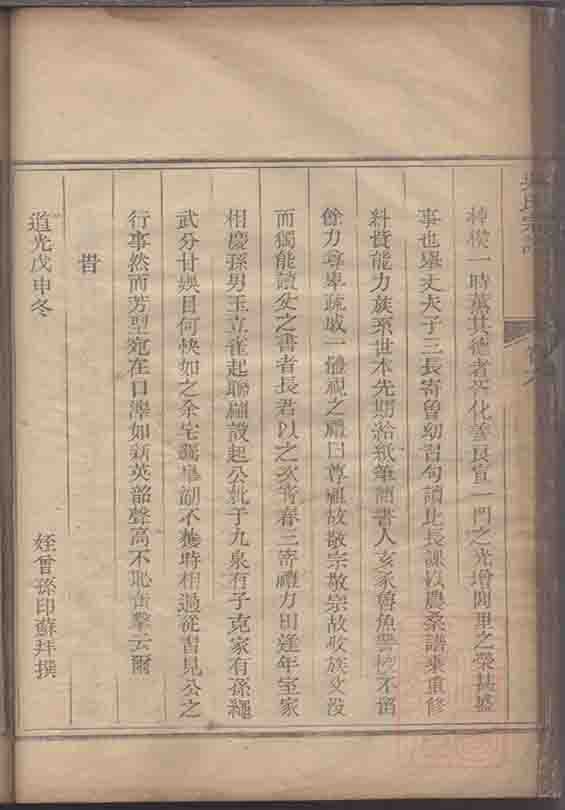 一時薰其德者不化善良宣一門之光增閭里之榮甚盛
事也畢丈夫子三長寄魯幼習句讀比長課以農桑譜乘重修
料費能力族系世本先期給紙筆請書人亥家魯魚 不滔
餘力尋畢疏戚一體視之禮曰尊祖故敬宗敬宗故收族父沒
而獨能讀父之書者長君以之次寄春三寄禮力田逢年室家
相慶孫男玉立雀起聯 設起公 于九泉有子克家有孫繩
武分甘娛目何快如之余宅 湖不獲時相過從習見公之
行事然而芳型宛在口澤如新英韶聲高不恥 云爾
旹
道光戊申冬
姪曾孫印蘇拜撰
氏宗譜